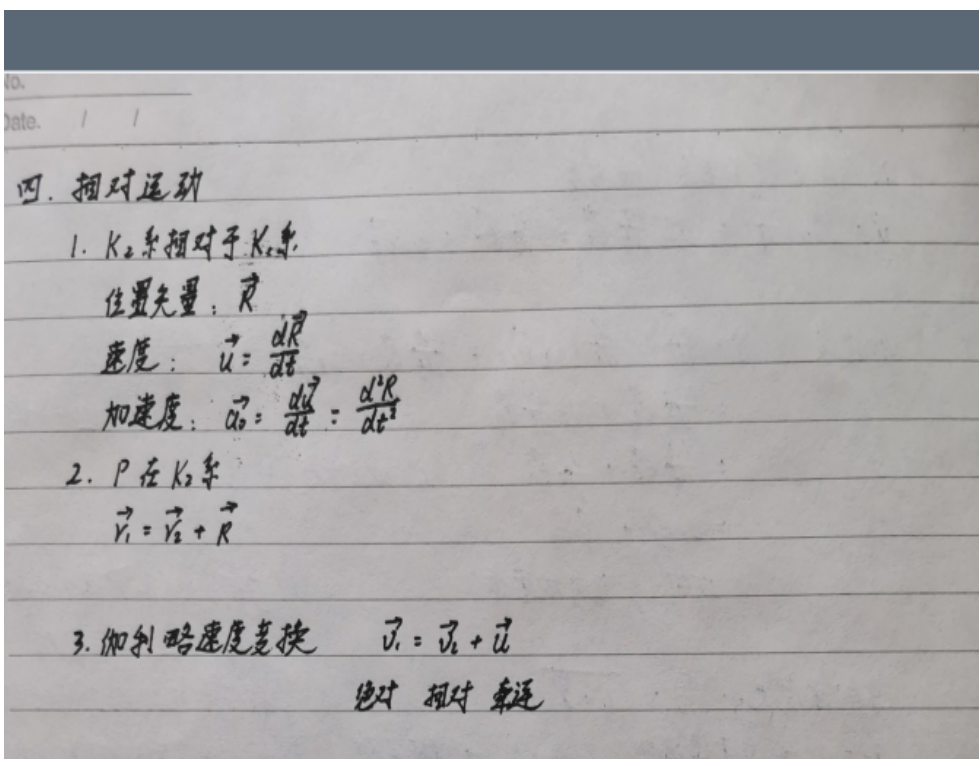 No.
Date. / /
四. 相对运动
1. K₂系相对于K₁系
位置矢量: R⃗
速度: u⃗ = dR⃗/dt
加速度: a₀⃗ = du⃗/dt = d²R/dt²
2. P在K₂系
r₁⃗ = r₂⃗ + R⃗
3. 伽利略速度变换 v₁⃗ = v₂⃗ + u⃗
绝对 相对 牵连